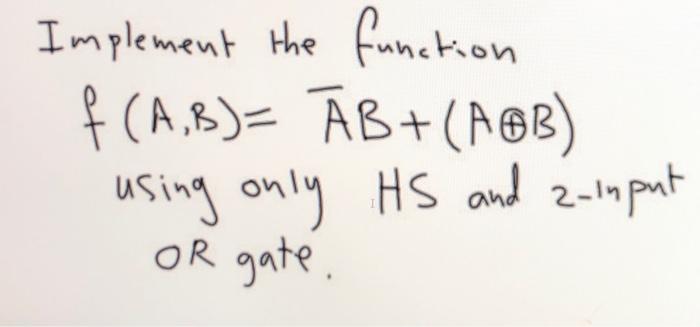 Implement the function
f(A,B)= A̅B+(A⊕B)
using only HS and 2-input
OR gate.